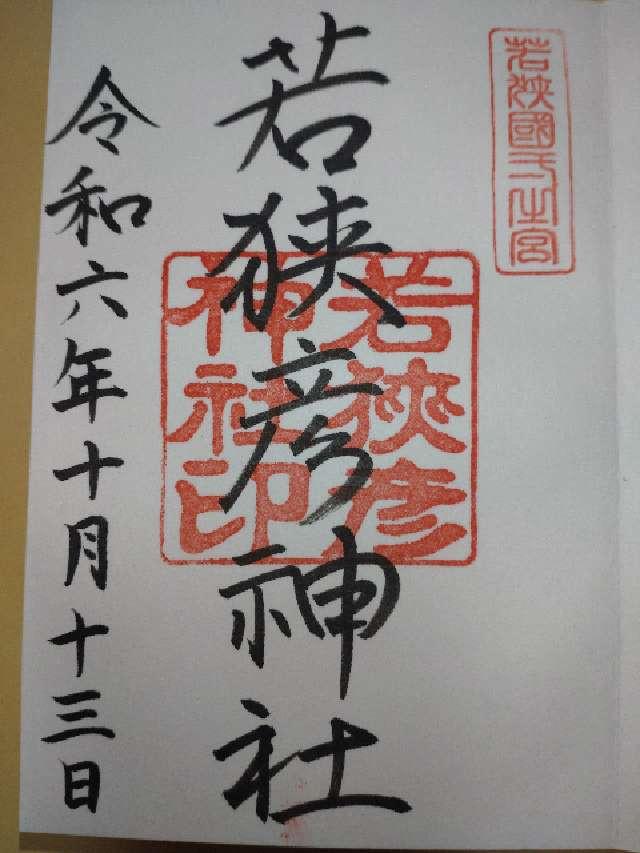 若狭國一之宮
若狭彦神社
若狭彦
神社印
令和六年十月十三日